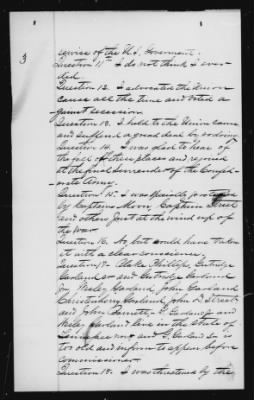 3
service of the U.S. Goverment.
Question 11th I do not think I ever
did
Question 12. I advocated the Union
cause all the time and voted a
gainst secession
Question 13. I held to the Union cause
and suffered a great deal by so doing
Question 14. I was glad to hear of
the fall of these places and rejoiced
at the final surrender of the Confed-
erate Army.
Question 15. I was
by Captains Captain Street
and others Just at the wind up of
the War
Question 16. No, but could have taken
it with a clear conscience
Question 17. Phillips, Gutridge
Garland sr and Gutridge Garland
Jr Wesley Garland John Garland
Christenberry Garland John D. Street
and John G. Garland jr and
Wesley Garland live in the State of
Tennessee now and G. Garland Sr is
too old and infirm to appear before
commissioner.
Question 18. I was threatened by the